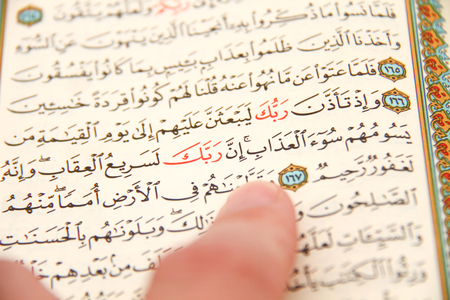 وَلَعَلَّهُمْ يَتَّقُونَ
فَلَمَّا نَسُوا مَا ذُكِّرُوا بِهِ أَنْجَيْنَا الَّذِينَ يَنْهَوْنَ عَنِ السُّوءِ
وَأَخَذْنَا الَّذِينَ ظَلَمُوا بِعَذَابٍ بَئِيسٍ بِمَا كَانُوا يَفْسُقُونَ
١٦٥ فَلَمَّا عَتَوْا عَنْ مَا نُهُوا عَنْهُ قُلْنَا لَهُمْ كُونُوا قِرَدَةً خَاسِئِينَ
١٦٦ وَإِذْ تَأَذَّنَ رَبُّكَ لَيَبْعَثَنَّ عَلَيْهِمْ إِلَى يَوْمِ الْقِيَامَةِ مَنْ
يَسُومُهُمْ سُوءَ الْعَذَابِ إِنَّ رَبَّكَ لَسَرِيعُ الْعِقَابِ وَإِنَّهُ
لَغَفُورٌ رَحِيمٌ ١٦٧ فِي الْأَرْضِ أُمَمًا مِنْهُمُ
الصَّالِحُونَ ذَلِكَ وَبَلَوْنَاهُمْ بِالْحَسَنَاتِ
وَالسَّيِّئَاتِ لَعَلَّهُمْ مِنْ بَعْدِهِمْ
وَرِثُوا الْكِتَابَ